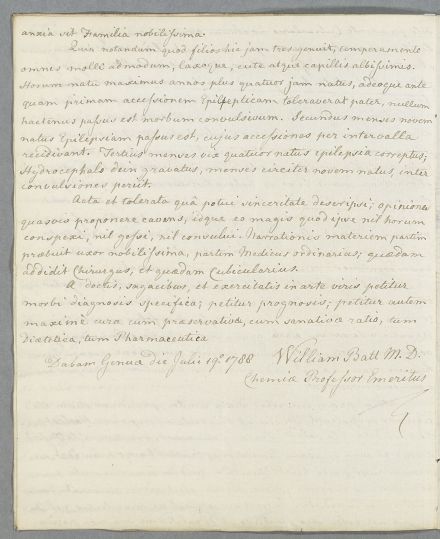 anxia sit Familia nobilissima.
Quin notandum quod filios hic jam tres genuit, temperamento
omnes molli admodum, laxoque, cute atque capillis albissimis.
Horum natu maximus annos plus quatuor jam natus, adeoque ante
quam primam accessionem Epilepticam toleraverat pater, nullum
hactenus passus est morbum convulsivum. Secundus menses novem
natus Epilepsiam passus est, cujus accessiones per intervalla
recidivant. Tertius menses vix quatuor natus epilepsia correptus;
Hydrocephalo dein gravatus, menses circiter novem natus, inter
convulsiones periit.
Acta et tolerata quâ potui sinceritate descripsi; opiniones
quasvis proponere cavens, eoque magis quod ipse nil horum
conspexi, nil gessi, nil consului. Narrationis materiem partim
præbuit uxor nobilissima, partim Medicus ordinarius; quædam
addidit Chirurgus, et quædam Cubicularius.
A doctis, sagacibus, et exercitatis in arte viris petitur
morbi diagnosis specifica; petitur prognosis; petitur autem
maximè cura cum præservativæ, cum sanativæ ratio, tum
Diætetica, tum Pharmaceutica
Dabam Genuæ die Julii 19º 1788 William Batt M. D.
Chemiæ Professor Emeritus